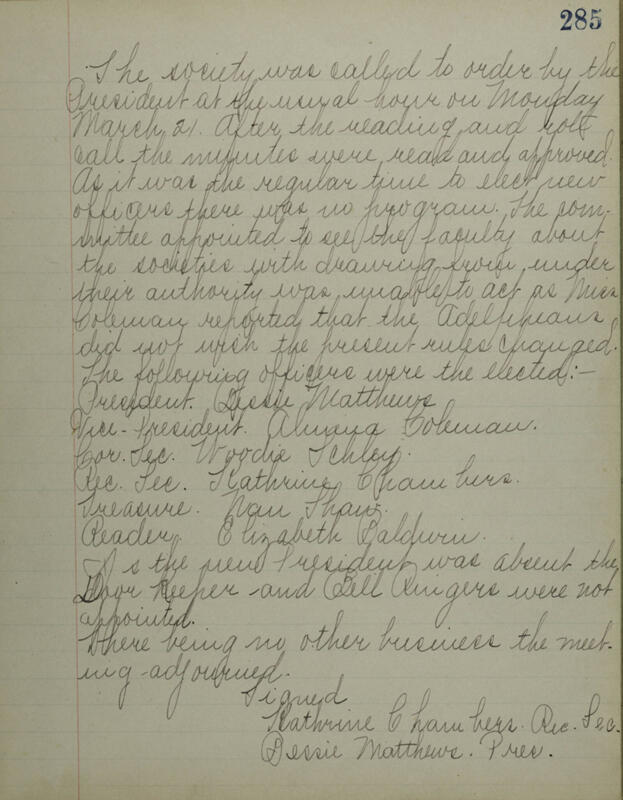 285
The society was called to order by the
President at the usual hour on Monday
March 21. After the reading and roll
call the minutes were read and approved.
As it was the regular time to elect new
officers there was no program. The com-
mittee appointed to see the faculty about
the societies withdrawing from under
their authority was unable to act as Miss
Coleman reported that the Adelphians
did not wish the present rules changed.
The following officers were the elected:-
President. Dessie Matthews
Vice-President. Almana Coleman.
Cor. Sec. Woodie Schley.
Rec. Sec. Kathrine Chambers.
Treasure. Nan Shaw.
Reader. Elizabeth Baldwin.
As the new President was absent the
Door Keeper and Bell Ringers were not
appointed.
There being no other business the meet-
ing adjourned.
Signed
Kathrine Chambers. Rec. Sec.
Dessie Matthews. Pres.